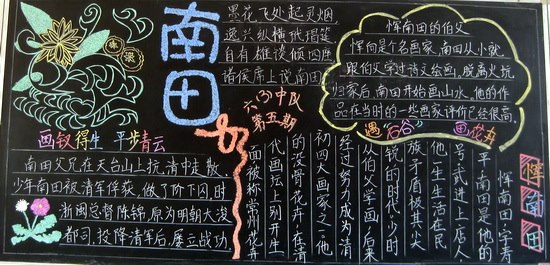 南田
墨花飞处起灵烟
逸兴纵横玳瑁筵
自有雄谈倾四座
诸侯席上说南田
六(3)中队
第五期
画钗得生 平步青云
南田父兄在天台山上抗清中走散,
少年南田被清军俘获,做了阶下囚时
浙闽总督陈锦,原为明朝大凌
都司,投降清军后,屡立战功
恽南田的伯父
恽向是个名画家,南田从小就
跟伯父学过诗文绘画,脱离火坑
归家后,南田开始画山水,他的作
品在当时的一些画家评价已经很高,
恽南田
恽南田字寿
平,南田是他的
号,武进上店人
他一生生活在民
族矛盾极其尖
锐的时代,少时
从伯父学画,后来
经过努力成为清
初四大画家之一。他
的没骨花卉,在清
代画坛上别开生
面,被称常州花卉